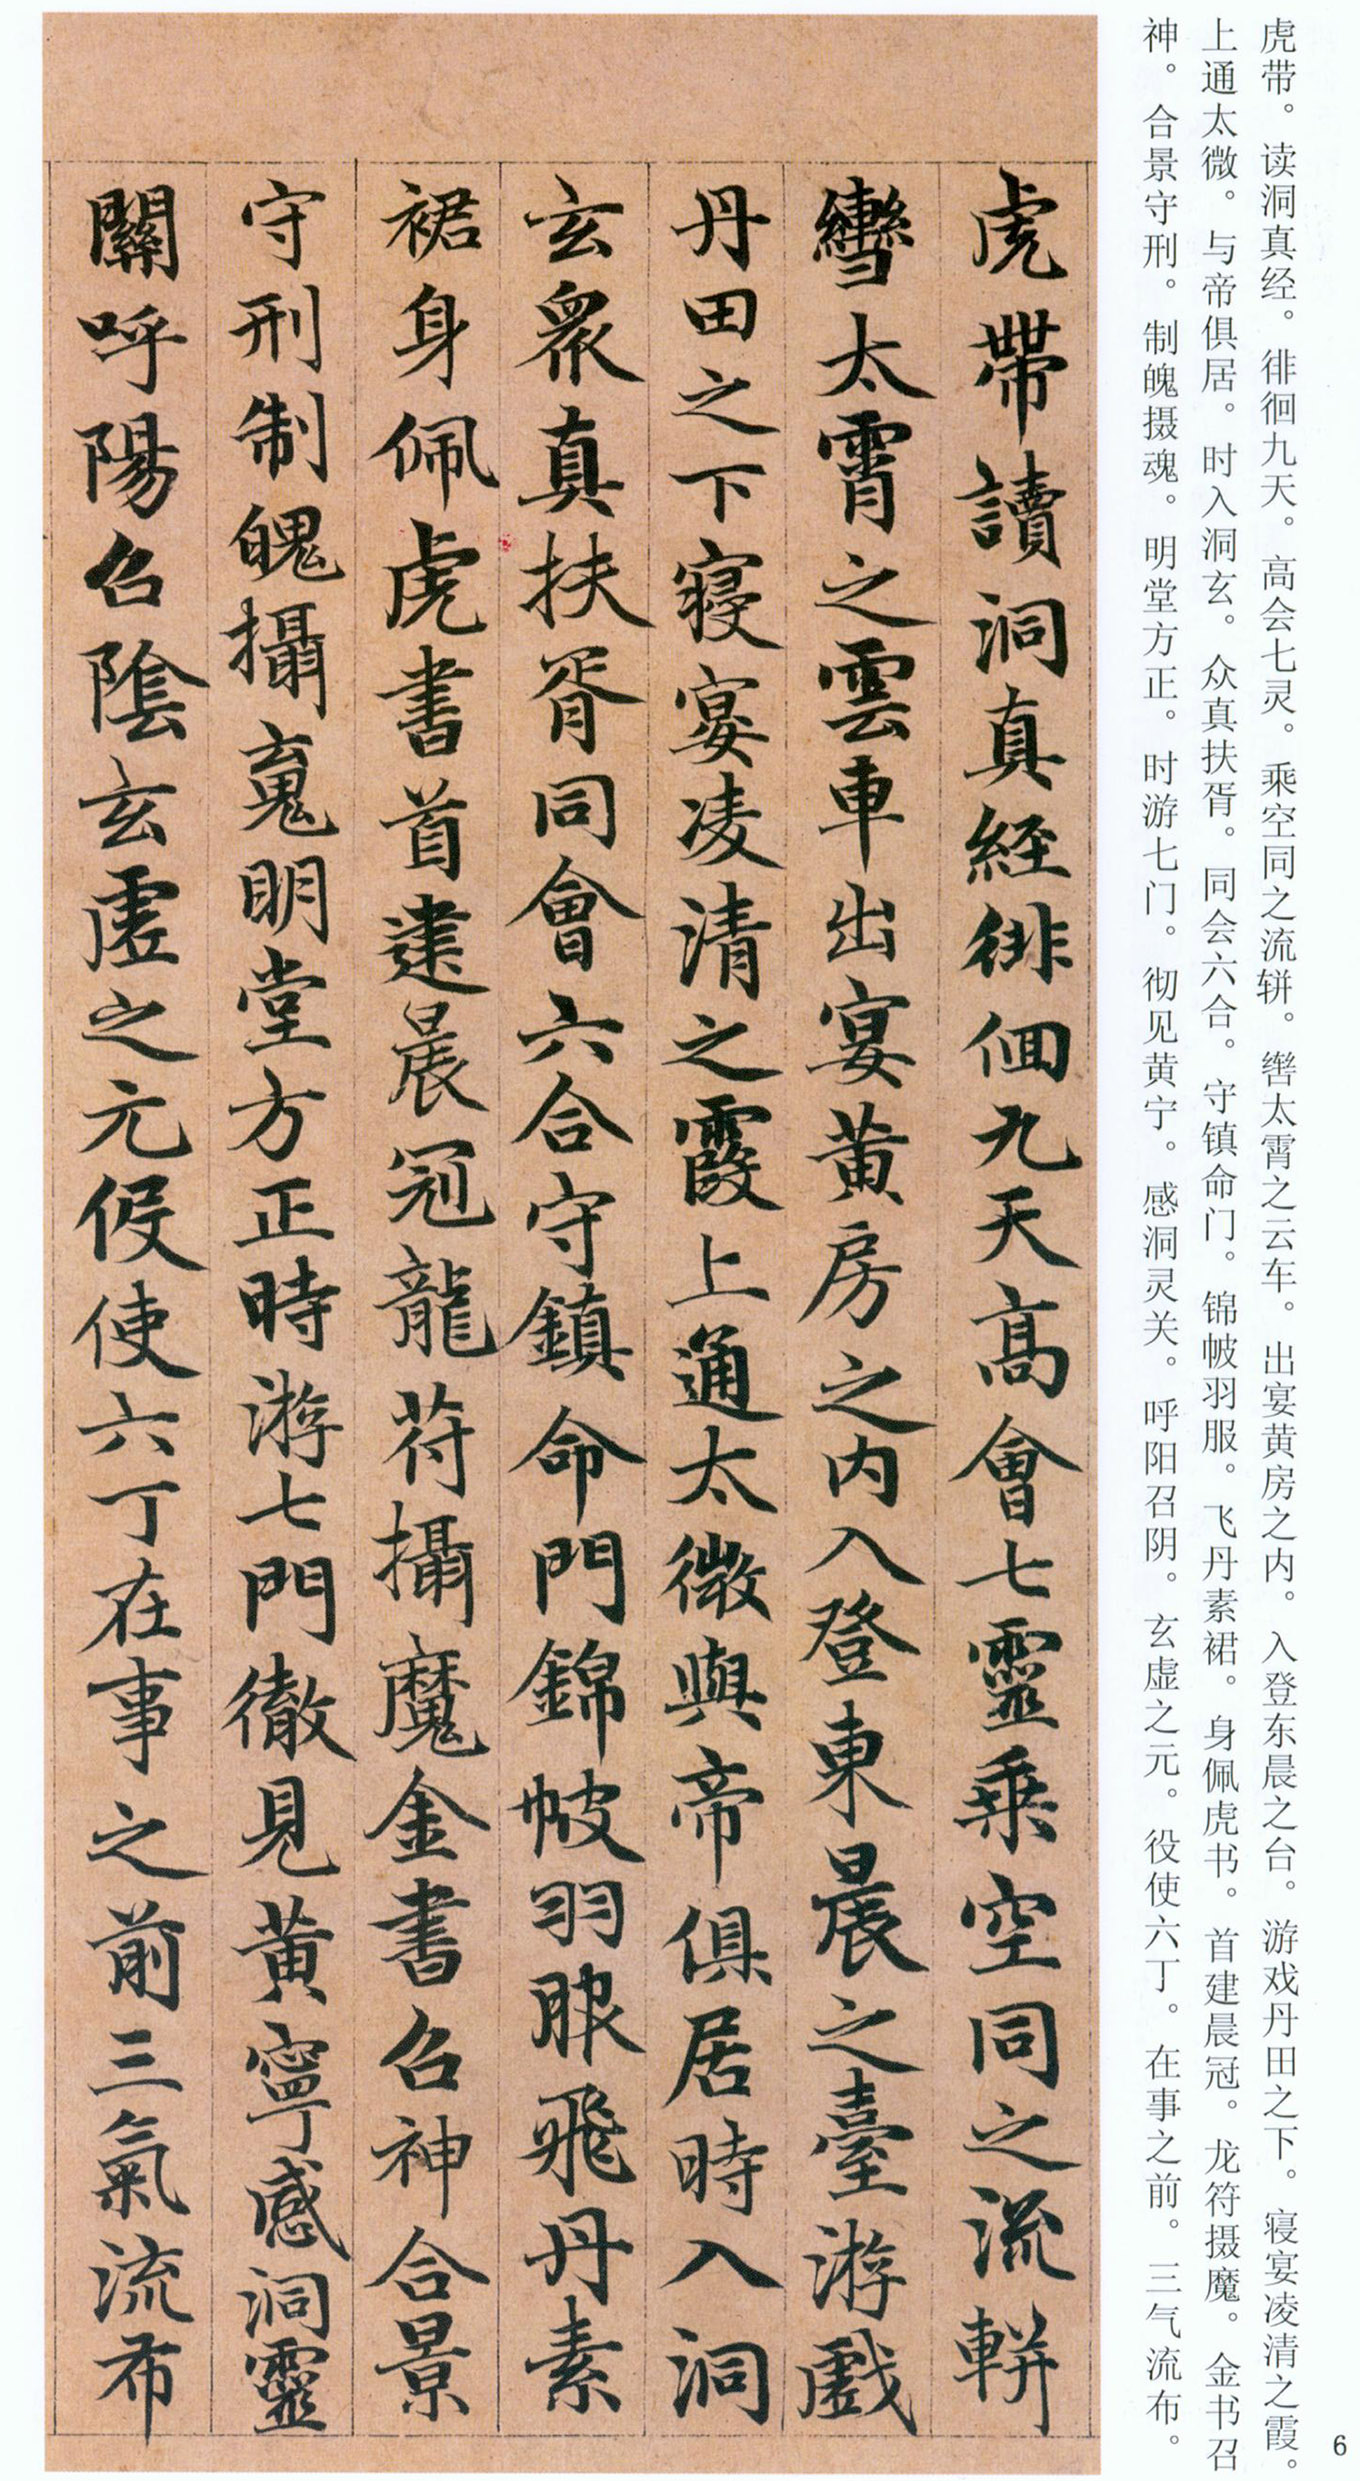 虎带。读洞真经。徘徊九天。高会七灵。乘空同之流軿。辔太霄之云车。出宴黄房之内。入登东晨之台。游戏丹田之下。寝宴凌清之霞。
上通太微。与帝俱居。时入洞玄。众真扶胥。同会六合。守镇命门。锦帔羽服。飞丹素裙。身佩虎书。首建晨冠。龙符摄魔。金书召
神。合景守刑。制魄摄魂。明堂方正。时游七门。彻见黄宁。感洞灵关。呼阳召阴。玄虚之元。役使六丁。在事之前。三气流布。
虎帶讀洞真經徘徊九天高會七靈乘空同之流軿
轡太霄之雲車出宴黃房之内入登東晨之臺游戲
丹田之下寝宴凌清之霞上通太微與帝俱居時入洞
玄眾真扶胥同會六合守鎮命門錦帔羽服飛丹素
裙身佩虎書首建晨冠龍符攝魔金書召神合景
守刑制魄攝魂明堂方正時游七門徹見黃寧感洞靈
關呼陽召陰玄虛之元役使六丁在事之前三氣流布
6